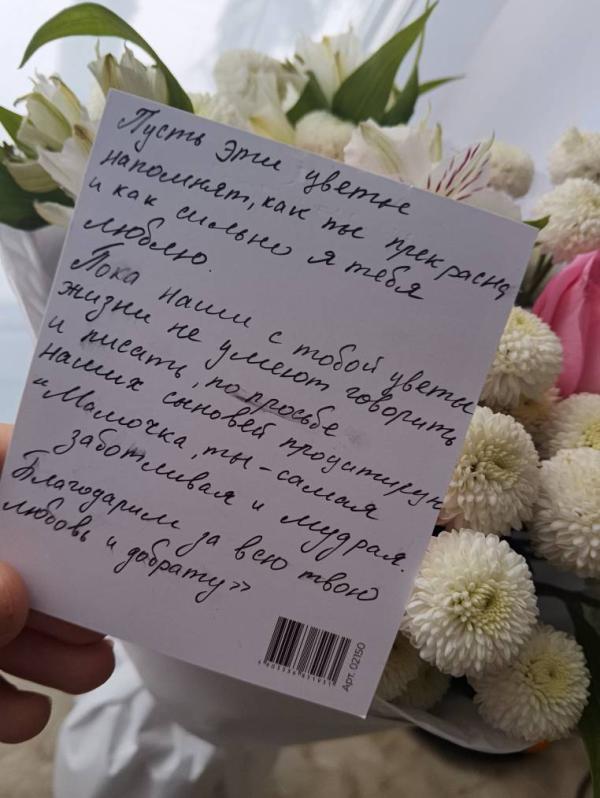 Пусть эти цветы
напомнят, как ты прекрасна
и как сильно я тебя
люблю.
Пока наши с тобой цветы
жизни не умеют говорить
и писать, по просьбе
наших сыновей процитирую
"Мамочка, ты - самая
заботливая и мудрая.
Благодарим за всю твою
любовь и доброту»
Арт. 02150